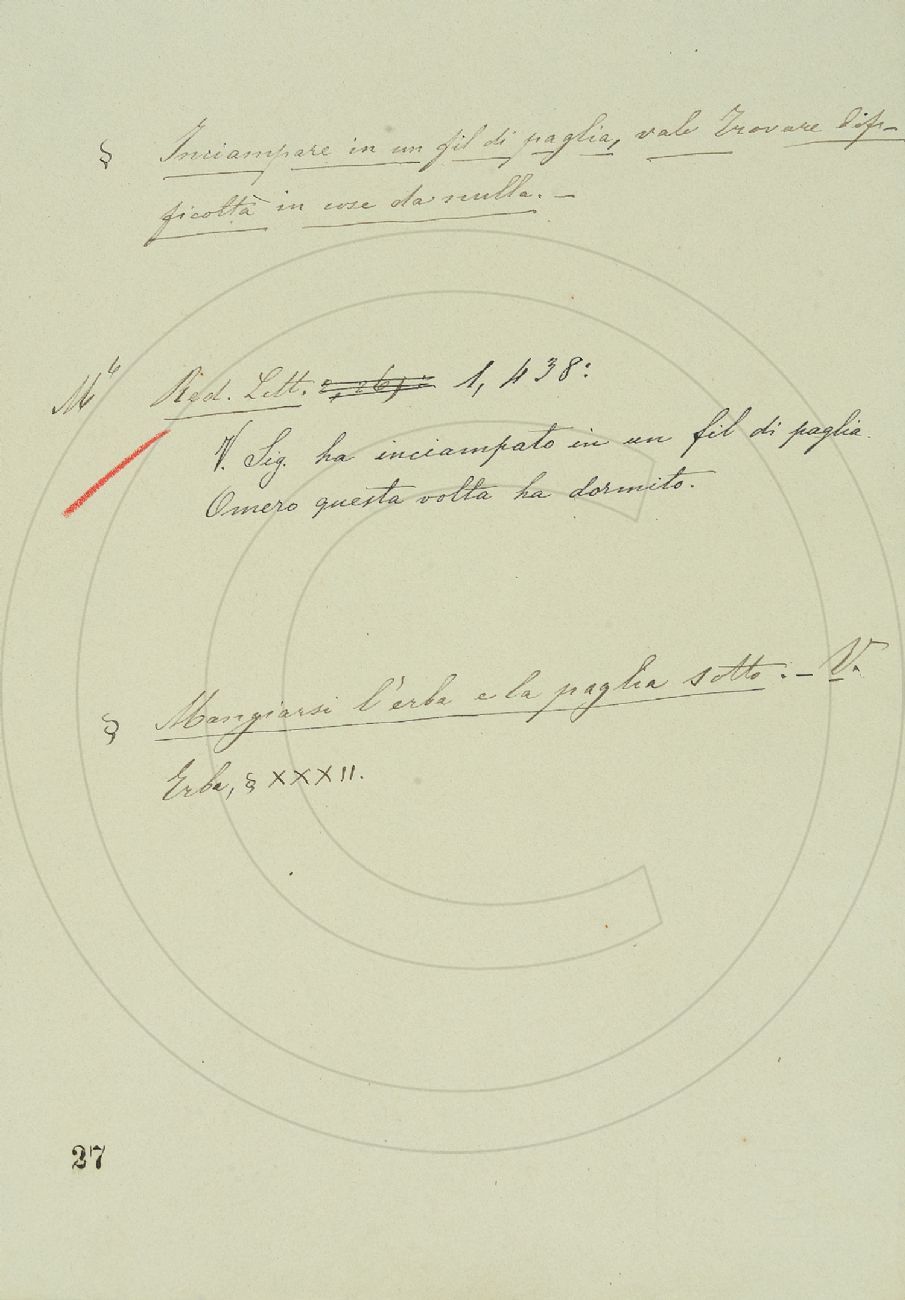 § Inciampare in un fil di paglia, vale Trovare dif-
ficoltà in cose da nulla. —
Red. Lett. 1, 438:
V. Sig. ha inciampato in un fil di paglia.
Omero questa volta ha dormito.
§ Mangiarsi l'erba e la paglia sotto. — V.
Erba, § XXXII.
27